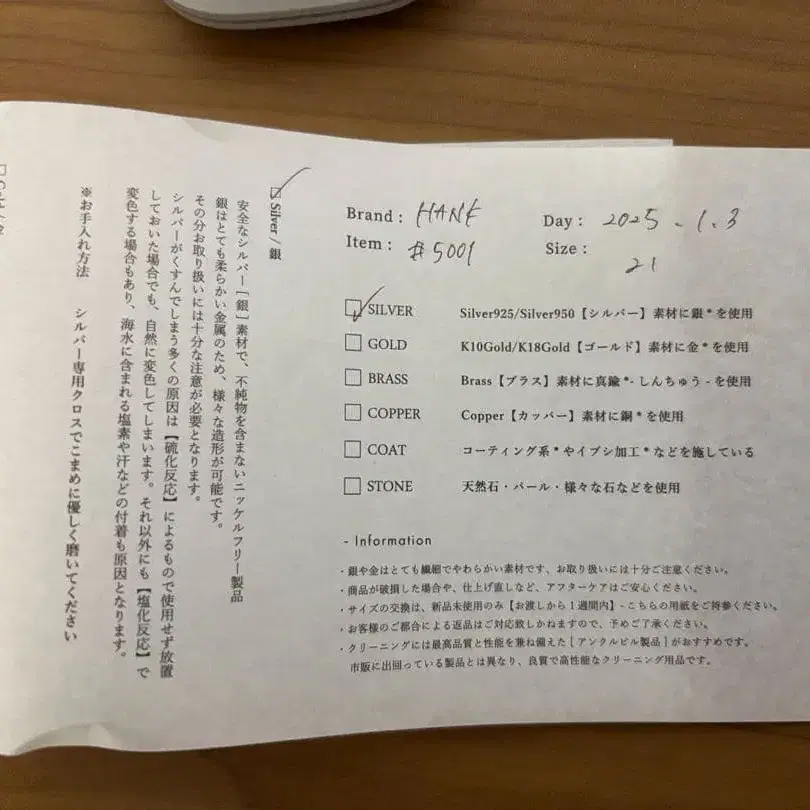 Brand : HANK
Day : 2025 . 1. 3
Item : #5001
Size : 21
SILVER Silver925/Silver950【シルバー】素材に銀*を使用
GOLD K10Gold/K18Gold【ゴールド】素材に金*を使用
BRASS Brass【ブラス】素材に真鍮*- しんちゅう - を使用
COPPER Copper【カッパー】素材に銅*を使用
COAT コーティング系*やイブシ加工*などを施している
STONE 天然石・パール・様々な石などを使用
- Information
・銀や金はとても繊細でやわらかい素材です、お取り扱いには十分ご注意ください。
・商品が破損した場合や、仕上げ直しなど、アフターケアはご安心ください。
・サイズの交換は、新品未使用のみ【お渡しから1週間内】-こちらの用紙をご持参ください。
・お客様のご都合による返品はご対応致しかねますので、予めご了承ください。
・クリーニングには最高品質と性能を兼ね備えた [ アンクルビル製品 ] がおすすめです。
市販に出回っている製品とは異なり、良質で高性能なクリーニング用品です。
Silver / 銀
安全なシルバー［銀］素材で、不純物を含まないニッケルフリー製品
銀はとても柔らかい金属のため、様々な造形が可能です。
その分お取り扱いには十分な注意が必要となります。
シルバーがくすんでしまう多くの原因は【硫化反応】によるもので使用せず放置
しておいた場合でも、自然に変色してしまいます。それ以外にも【塩化反応】で
変色する場合もあり、海水に含まれる塩素や汗などの付着も原因となります。
※お手入れ方法 シルバー専用クロスでこまめに優しく磨いてください